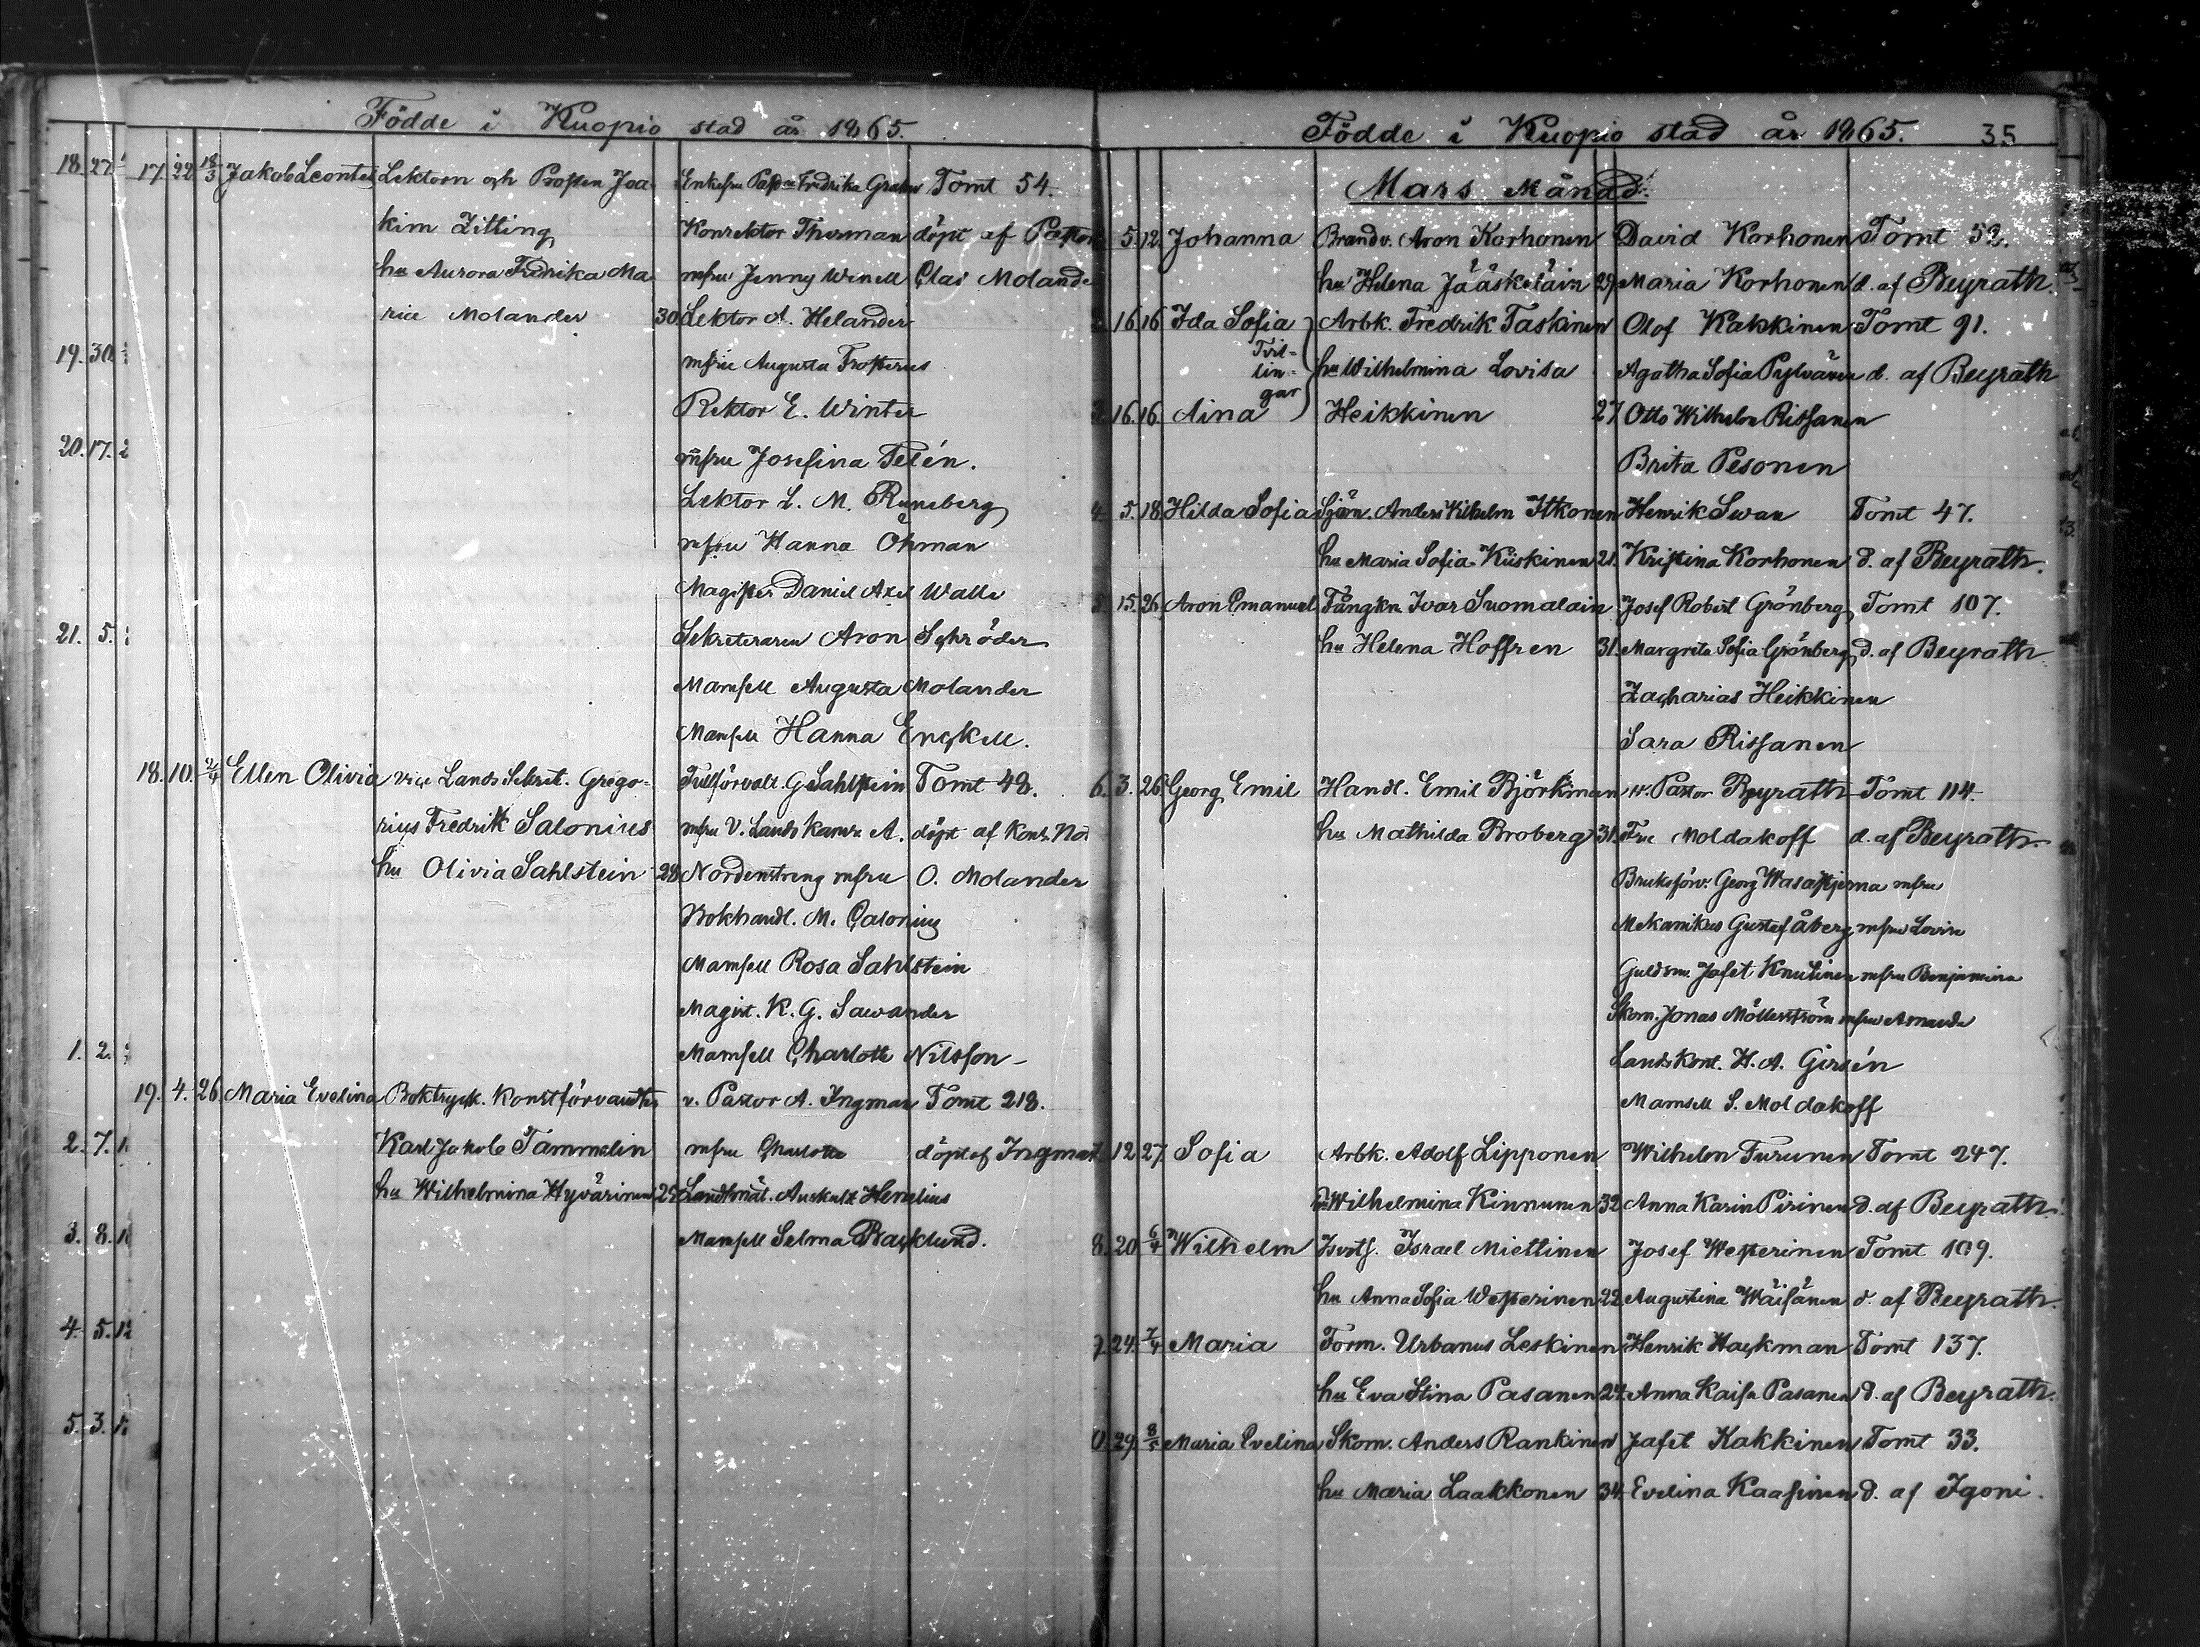 Födde i Kuopio stad år 1865.
17. 22 18/3 Jakob Leontes Lektorn och Prosten Joa Enkefru Fredrika Tomt 54.
kim Zitting Konrektor Therman döpt af
hu Aurora Fredrika Ma mfru Jenny Winell Clas Molander
rie Molander 30 Lektor A. Helander
mfru Augusta Frosterus
Rektor E. Winter
mfru Josefina Telén.
Lektor L. M. Runeberg
mfru Hanna Öhman
Magister Daniel Axel Walle
Sekreteraren Aron Schröder
Mamsell Augusta Molander
Mamsell Hanna Enckell.
18. 10. 2/4 Ellen Olivia vice Lands Sekret. Grego- Tullförvalt. G Sahlstein Tomt 48.
rius Fredrik Salonius mfru V. Lands Kamr. A. döpt af Kont. No
hu Olivia Sahlstein 28 Nordenstreng mfru O. Molander
Bokhandl. M.
Mamsell Rosa Sahlstein
Magist. K. G. Sawander
Mamsell Charlotte Nilsson
19. 4. 26. Maria Evelina Boktryck. Konstförvandten v. Pastor A. Ingman Tomt 218.
Karl Jakob Tammelin mfru Charlotte döpt af Ingman
hu Wilhelmina Hyvärinen 25 Landtmät. Auskult.
Mamsell Selma Backlund.
18. 27.
19. 30.
20. 17. 2
21. 5.
1. 2.
2. 7. 1
3. 8. 1
4. 5. 12
5. 3.
Födde i Kuopio stad år 1865. 35
Mars Månad.
5. 12. Johanna Brandv. Aron Korhonen David Korhonen Tomt 52.
hu Helena Jääskeläin 29. Maria Korhonen d. af Beyrath.
16. 16 Ida Sofia Arbk. Fredrik Taskinen Olof Kakkinen Tomt 91.
Tvil-
lin- hu Wilhelmina Lovisa Agatha Sofia Pylvänen d. af Beyrath
gar
16. 16. Aina Heikkinen 27 Otto Wilhelm Rissanen
Brita Pesonen
4. 5. 18. Hilda Sofia Sjöm. Anders Wilhelm Itkonen Henrik Swan Tomt 47.
hu Maria Sofia Kiiskinen 21. Kristina Korhonen d. af Beyrath.
5. 15. 26. Aron Emanuel Fångkn. Ivar Suomalain Josef Robert Grönberg Tomt 107.
hu Helena Hoffren 31. Margreta Sofia Grönberg d. af Beyrath
Zacharias Heikkinen
Sara Rissanen
6. 3. 26 Georg Emil Handl. Emil Björkman v. Pastor Beyrath Tomt 114.
hu Mathilda Broberg 31. Fru Moldakoff d. af Beyrath.
Bruksförv. Georg Wasastjerna mfru
Mekanikus Gustaf Åberg mfru Lovise
Guldsm. Jafet Knutinen mfru Benjamina
Skom. Jonas Möllerström mfru Amanda
Lands Kont. H. A. Girsén
Mamsell S. Moldakoff
7. 12. 27 Sofia Arbk. Adolf Lipponen Wilhelm Turunen Tomt 247.
hu Wilhelmina Kinnunen 32. Anna Karin Pirinen d. af Beyrath.
8. 20. 6/4 Wilhelm Israel Miettinen Josef Westerinen Tomt 109.
hu Anna Sofia Westerinen 22. Augustina Wäisänen d. af Beyrath.
9. 24. 7/4 Maria Form. Urbanus Leskinen Henrik Hackman Tomt 137.
hu Eva Stina Pasanen 24. Anna Kaisa Pasanen d. af Beyrath.
0. 29. 8/5 Maria Evelina Skom. Anders Rankinen Jafet Kakkinen Tomt 33.
hu Maria Laakkonen 34. Evelina Kaasinen d. af Igoni.